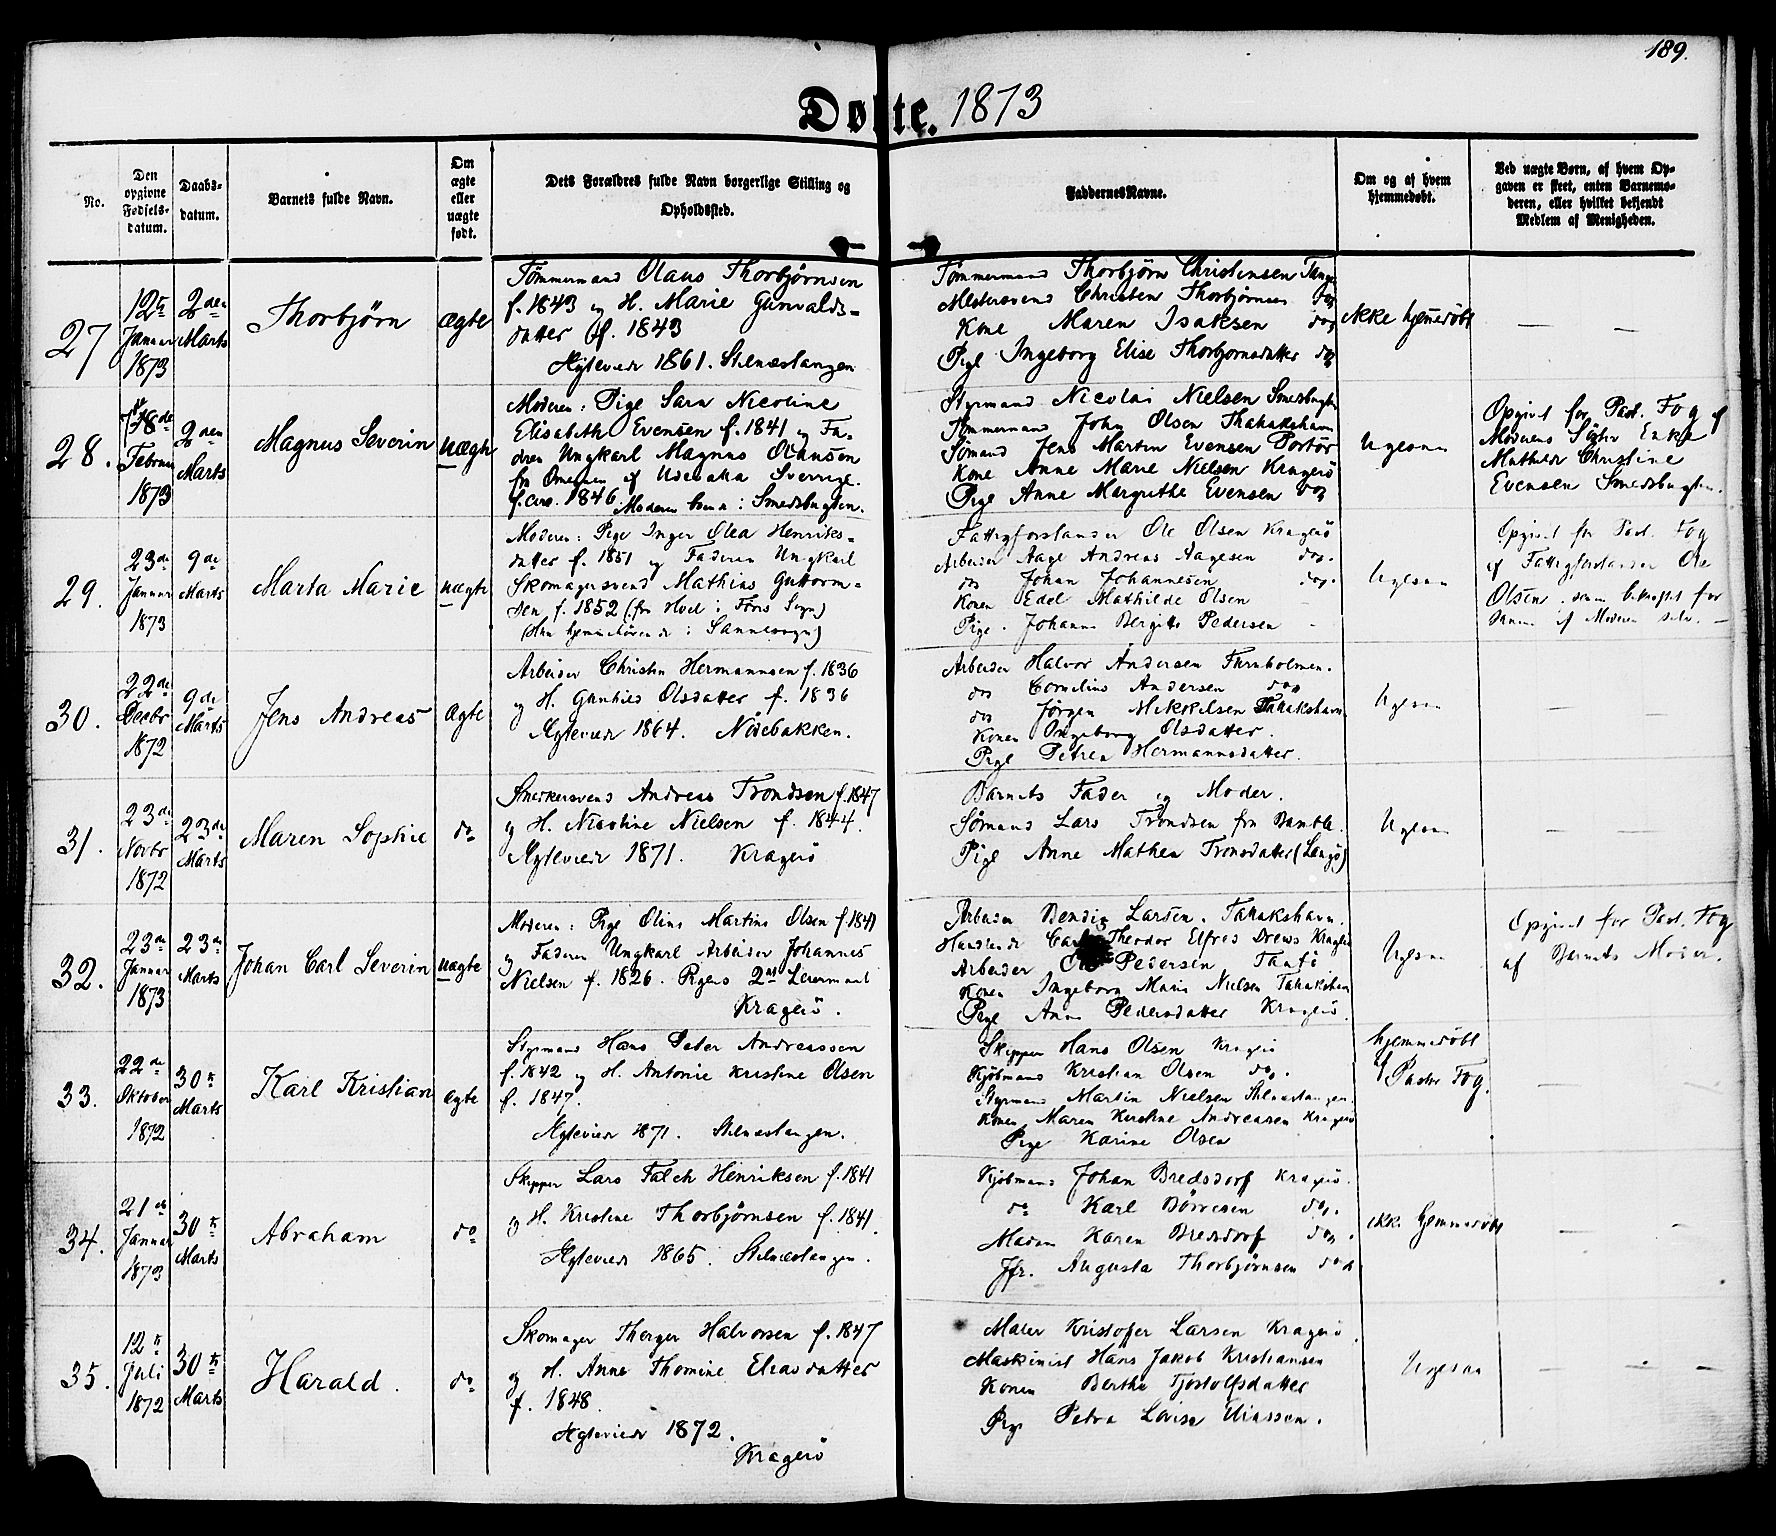 189.
Døbte. 1873
No.
Den opgivne Fødsels-datum.
Daabs-datum.
Barnets fulde Navn.
Om ægte eller uægte født.
Dets Forældres fulde Navn borgerlige Stilling og Opholdssted.
Faddernes Navne.
Om og af hvem hjemmedøbt.
Ved uægte Børn, af hvem Opgaven er skeet, enten Barnemoderen, eller hvilket bekjendt Medlem af Menigheden.
27
12te Januar 1873
2den Marts
Thorbjörn
ægte
Tömmermand Olaus Thorbjörnsen
f. 1843 og H. Marie Gunvalds-
datter f. 1843
Ægteviede 1861. Stilnæstangen
Tömmermand Thorbjörn Christensen Tangen
Mestersvend Christen Thorbjörnsen do
Kone Maren Isaksen do
Pige Ingeborg Elise Thorbjornsdatter do
ikke hjemedöbt
— —
28.
18de Februar 1873
2den Marts
Magnus Severin
uægte
Moderen: Pige Sara Nicoline
Elisabeth Evensen f. 1841 og Fa-
deren Ungkarl Magnus Olausen
fra Omegnen af Udevalla Sverrige.
f. circa 1846. Moderen boende: Smedsbugten.
Styrmand Nicolai Nielsen Smedsbugten
Tömmermand John Olsen Tatakshavn
Sömand Jens Martin Evensen Portör
Kone Anne Marie Nielsen Kragerö
Pige Anne Margrethe Evensen do
Ligesaa
Opgivet for Past. Fog af
Moderens Söster Enke
Mathilde Christine
Evensen Smedsbugten.
29.
23de Januar 1873
9de Marts
Marta Marie
uægte
Moderen: Pige Inger Olea Henriks-
datter f. 1851 og Faderen Ungkarl
Skomagersvend Mathias Guttorm-
sen f. 1852 (fra Hvel i Fons Sogn)
(Hun hjemmehörende i Sannesogn)
Fattigforstander Ole Olsen Kragerö
Arbeider Aage Andreas Aagesen do.
do Johan Johannesen do.
Konen Edel Mathilde Olsen
Pige. Johanne Bergitte Pedersen -
Ligesaa
Opgivet for Past. Fog
af Fattigforstander Ole
Olsen, senere bekræftet for
samme af Moderen selv. —
30.
22de Decbr 1872
9de Marts
Jens Andreas
ægte
Arbeider Christen Hermannsen f. 1836
og H. Gunhild Olsdatter f. 1836
Ægteviede 1864. Nödebakken.
Arbeider Halvor Andersen Furuholmen.
do Cornelius Andersen do
do Jörgen Mikkelsen Tatakshavn
Konen Ingeborg Olsdatter.
Pige Petrea Hermannsdatter.
Ligesaa
— —
31.
23de Novbr 1872
23de Marts
Maren Sophie
do
Snedkersvend Andreas Trondsen f. 1847
og H. Nicoline Nielsen f. 1844.
Ægteviede 1871. Kragerö
Barnets Fader og Moder.
Sömand Lars Trondsen fra Bamble.
Pige Anne Mathea Tronsdatter (Langö)
Ligesaa
— —
32.
23de Januar 1873
23de Marts
Johan Carl Severin
uægte
Moderen: Pige Oline Martine Olsen f. 1841
og Faderen Ungkarl Arbeider Johannes
Nielsen f. 1826. Pigens 2det Leiermaal
Kragerö.
Arbeider Bendix Larsen. Tatakshavn.
Handlende Carl Theodor Elfred Drews Kragerö
Arbeider Ole Pedersen Tatö
Konen Ingeborg Marie Nielsen Tatakshavn
Pige Anne Pedersdatter Kragerö.
Ligesaa
Opgivet for Past. Fog
af Barnets Moder.
33.
22de Oktober 1872
30te Marts
Karl Kristian
ægte
Styrmand Hans Peter Andreassen
f. 1842 og H. Antonie Kristine Olsen
f. 1847.
Ægteviede 1871. Stilnæstangen.
Skipper Hans Olsen Kragerö
Kjöbmand Kristian Olsen do.
Styrmand Martin Nielsen Stilnæstangen.
Konen Maren Kirstine Andreassen Kragerö
Pige Karine Olsen
hjemmedöbt
af Pastor Fog.
—
34.
21de Januar 1873
30te Marts
Abraham
do
Skipper Lars Falch Henriksen f. 1841
og H. Kristine Thorbjörnsen f. 1841.
Ægteviede 1865. Stilnæstangen.
Kjöbmand Johan Bredsdorf Kragerö.
do Karl Börresen do.
Madam Karen Bredsdorf do.
Jfr. Augusta Thorbjörnsen do
ikke hjemmedöbt
— —
35.
12te Juli 1872
30te Marts
Harald.
do
Skomager Therger Halvorsen f. 1847
og H. Anne Thomine Eliasdatter
f. 1848.
Ægteviede 1872.
Kragerö
Maler Kristofer Larsen Kragerö.
Maskinist Hans Jakob Kristiansen
Konen Berthe Tjostolfsdatter
Pige Petra Lovise Eliassen.
Ligesaa
— —